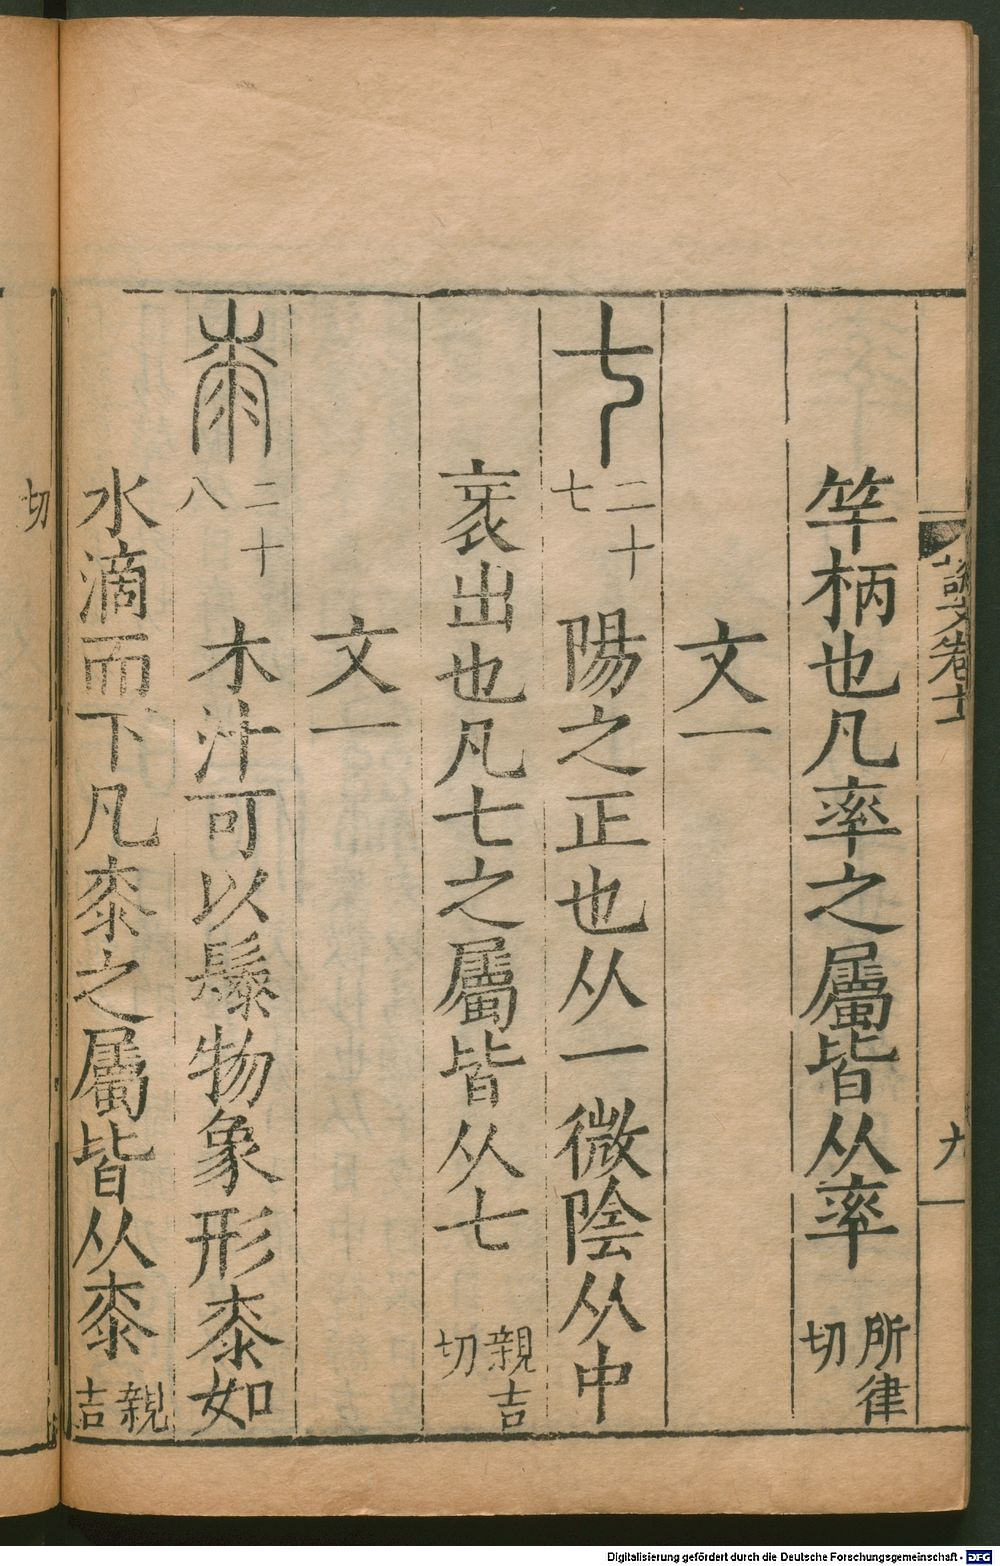 說文卷十
九
竿柄也凡率之屬皆从率所律切
文一
七二十七陽之正也从一微陰从中
衺出也凡七之屬皆从七親吉切
文一
桼二十八木汁可以䰍物象形桼如
水滴而下凡桼之屬皆从桼親吉
切
Digitalisierung gefördert durch die Deutsche Forschungsgemeinschaft - DFG